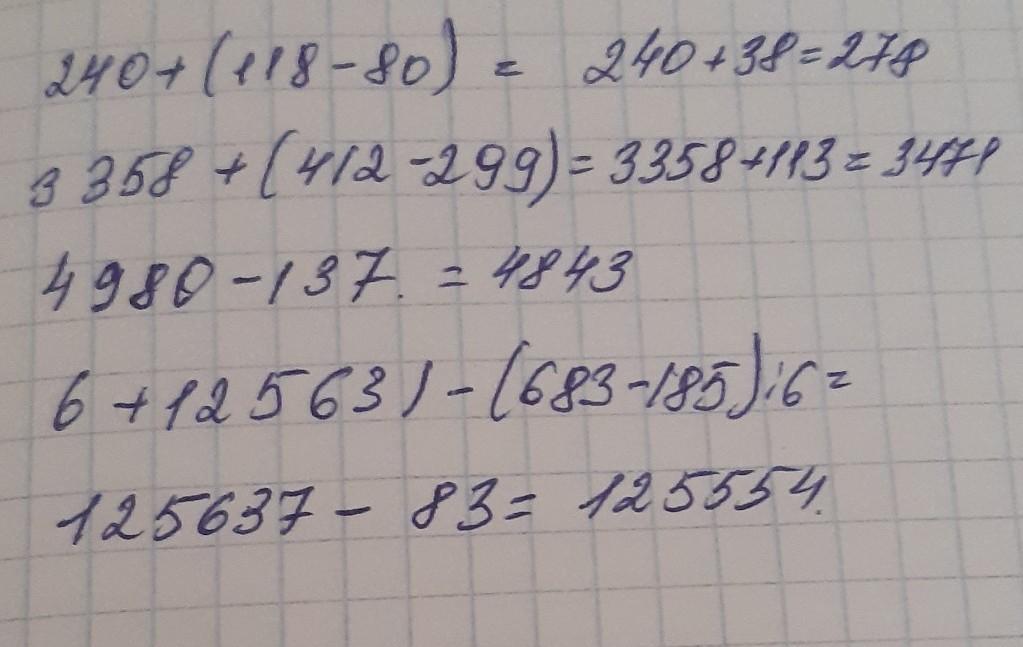 240+(118-80) = 240+38=278
3358+(412-299)=3358+113=3471
4980-137. =4843
6+125631-(683-185):6=
125637- 83= 125554.